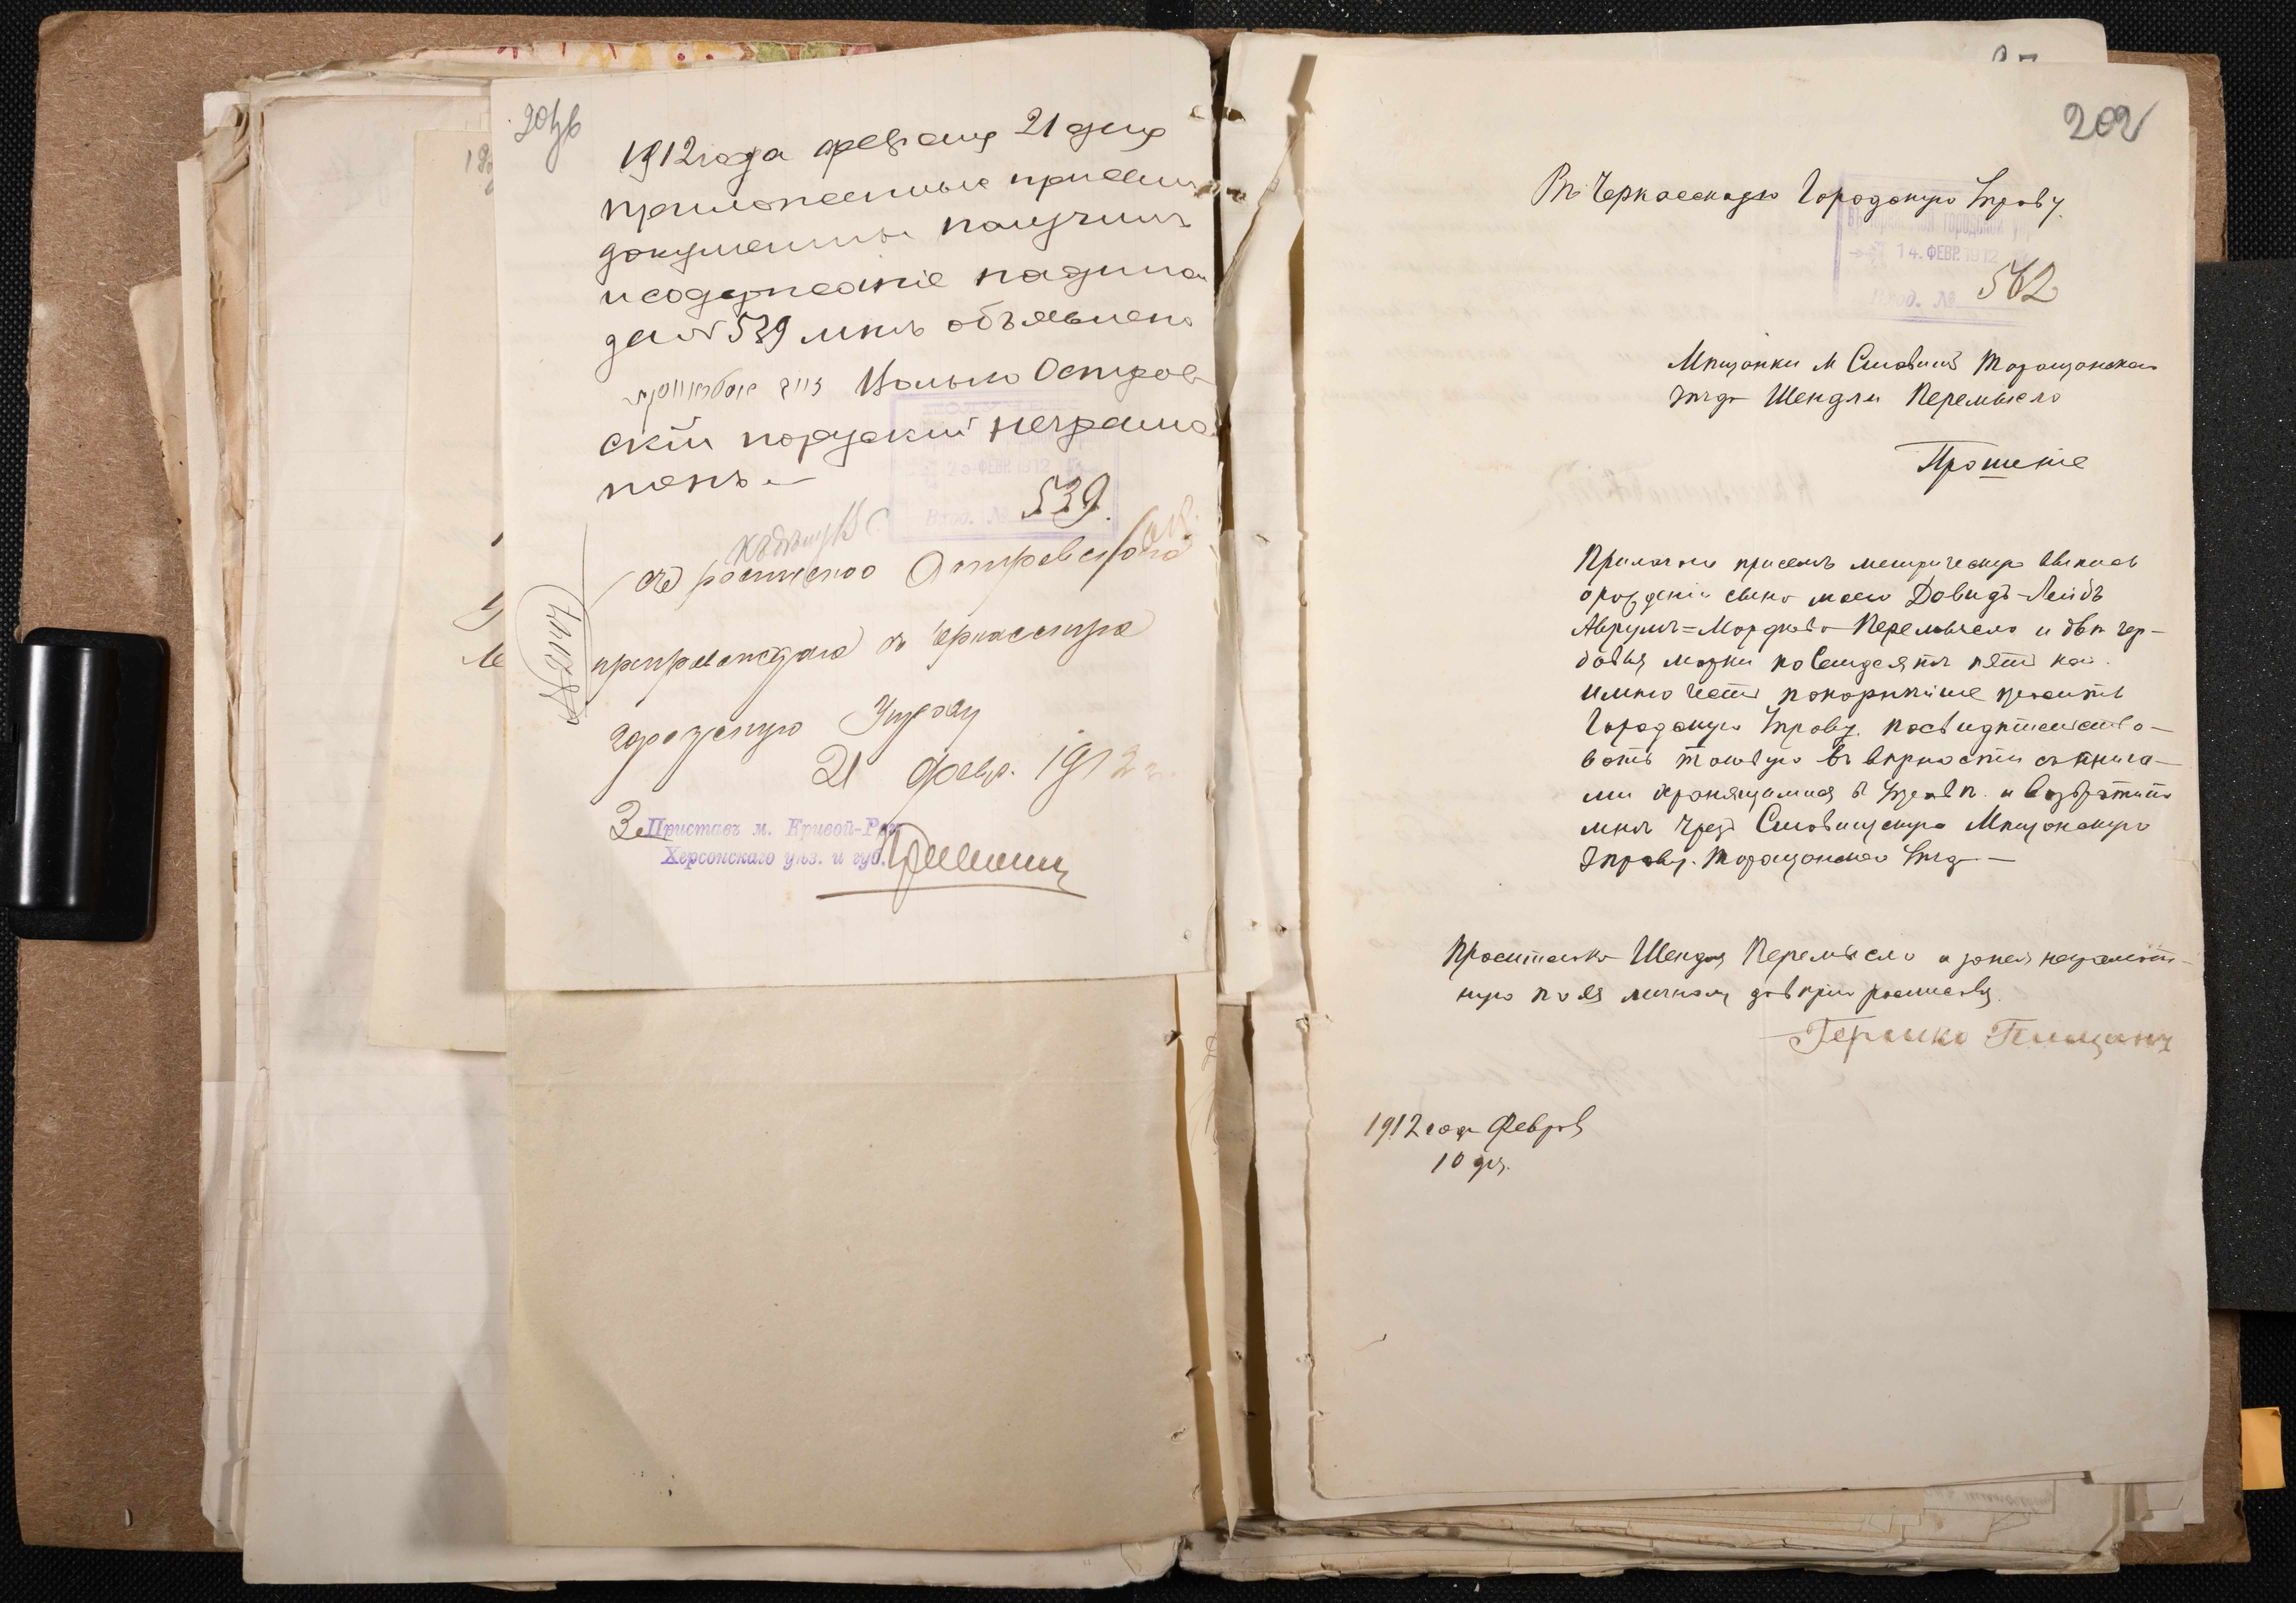 1912 года февраля 21 дня
приложенные при семъ
документы получилъ
и содержаніе надписи
за № 539 мнѣ объявлено
Іолько Остров-
скій порускій неграмо-
тенъ.—
25 ФЕВР. 1912
Вход. № 539.
Къ дѣлу
Съ роспиской Островского
препровождаю въ Черкасскую
городскую Управу
21 февр. 1912 г.
За Приставъ м. Кривой-Рог
Херсонскаго уѣз. и губ.
№ 1074
202
Въ Черкасскую Городскую Управу.
14. ФЕВР. 1912
Вход. № 562
Мѣщанки м Ставищъ Таращанскаго
уѣзда Шендли Перемысло
Прошеніе
Прилагая присемъ метрическую выпись
о рожденіи сына моего Довидъ-Лейбъ
Аврумъ=Мордкова Перемысло и двѣ гер-
бовыя марки по Семидесяти пяти коп.
имѣю честь покорнѣйше просить
Городскую Управу. посвидѣтельство-
вать таковую въ вѣрности съ книга-
ми хранящимися в Управѣ. и возвратить
мнѣ чрезъ Ставищскую Мѣщанскую
Управу. Таращанскаго Уѣзда —
Просительница Шендля Перемысло а занея неграмот-
ную по ея личному довѣрію росписался
Гершко
1912 года Февраля
10 дня.